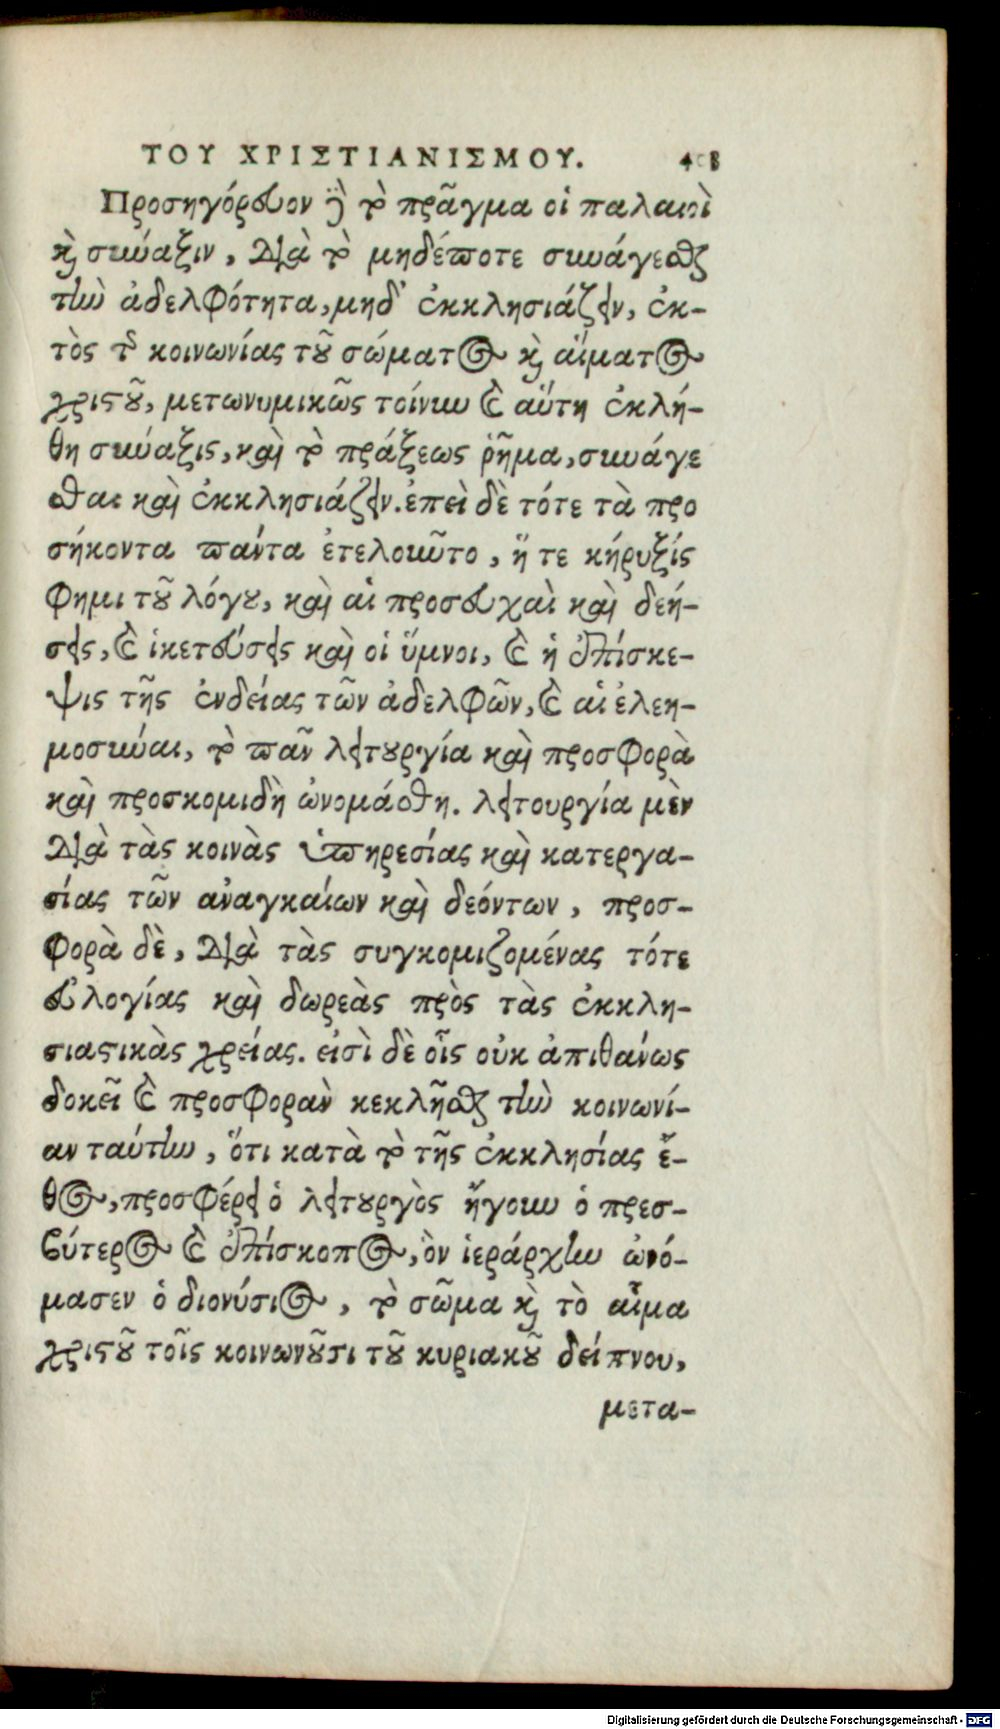 ΤΟΥ ΧΡΙΣΤΙΑΝΙΣΜΟΥ.
Προσηγόρευον δὲ τὸ πρᾶγμα οἱ παλαιοὶ
καὶ σύναξιν, διὰ τὸ μηδέποτε συνάγεσθαι
τὴν ἀδελφότητα, μηδ' ἐκκλησιάζειν, ἐκ-
τὸς τῆς κοινωνίας τοῦ σώματος καὶ αἵματος
χριστοῦ, μετωνυμικῶς τοίνυν καὶ αὕτη ἐκλή-
θη σύναξις, καὶ τὸ πράξεως ῥῆμα, συνάγε
σθαι καὶ ἐκκλησιάζειν. ἐπεὶ δὲ τότε τὰ προ
σήκοντα πάντα ἐτελοῦντο, ἥ τε κήρυξίς
φημι τοῦ λόγου, καὶ αἱ προσευχαὶ καὶ δεή-
σεις, καὶ ἱκετεύσεις καὶ οἱ ὕμνοι, καὶ ἡ ἐπίσκε-
ψις τῆς ἐνδείας τῶν ἀδελφῶν, καὶ αἱ ἐλεη-
μοσύναι, τὸ πᾶν λειτουργία καὶ προσφορὰ
καὶ προσκομιδὴ ὠνομάσθη. λειτουργία μὲν
διὰ τὰς κοινὰς ὑπηρεσίας καὶ κατεργα-
σίας τῶν ἀναγκαίων καὶ δεόντων, προσ-
φορὰ δὲ, διὰ τὰς συγκομιζομένας τότε
εὐλογίας καὶ δωρεὰς πρὸς τὰς ἐκκλη-
σιαστικὰς χρείας. εἰσὶ δὲ οἷς οὐκ ἀπιθάνως
δοκεῖ καὶ προσφορὰν κεκλῆσθαι τὴν κοινωνί-
αν ταύτην, ὅτι κατὰ τὸ τῆς ἐκκλησίας ἔ-
θος, προσφέρει ὁ λειτουργὸς ἤγουν ὁ πρεσ-
βύτερος καὶ ἐπίσκοπος, ὃν ἱεράρχην ὠνό-
μασεν ὁ διονύσιος, τὸ σῶμα καὶ τὸ αἷμα
χριστοῦ τοῖς κοινωνοῦσι τοῦ κυριακοῦ δείπνου,
μετα-
Digitalisierung gefördert durch die Deutsche Forschungsgemeinschaft - DFG